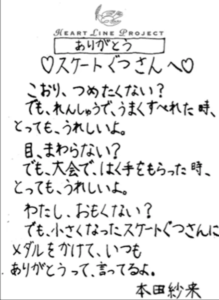 HEART LINE PROJECT
ありがとう
♡スケートぐつさんへ♡
こおり、つめたくない?
でも、れんしゅうで、うまくすべれた時、
とっても、うれしいよ。
目、まわらない?
でも、大会で、はく手をもらった時、
とっても、うれしいよ。
わたし、おもくない?
でも、小さくなったスケートぐつさんに
メダルをかけて、いつも
ありがとうって、言ってるよ。
本田紗来